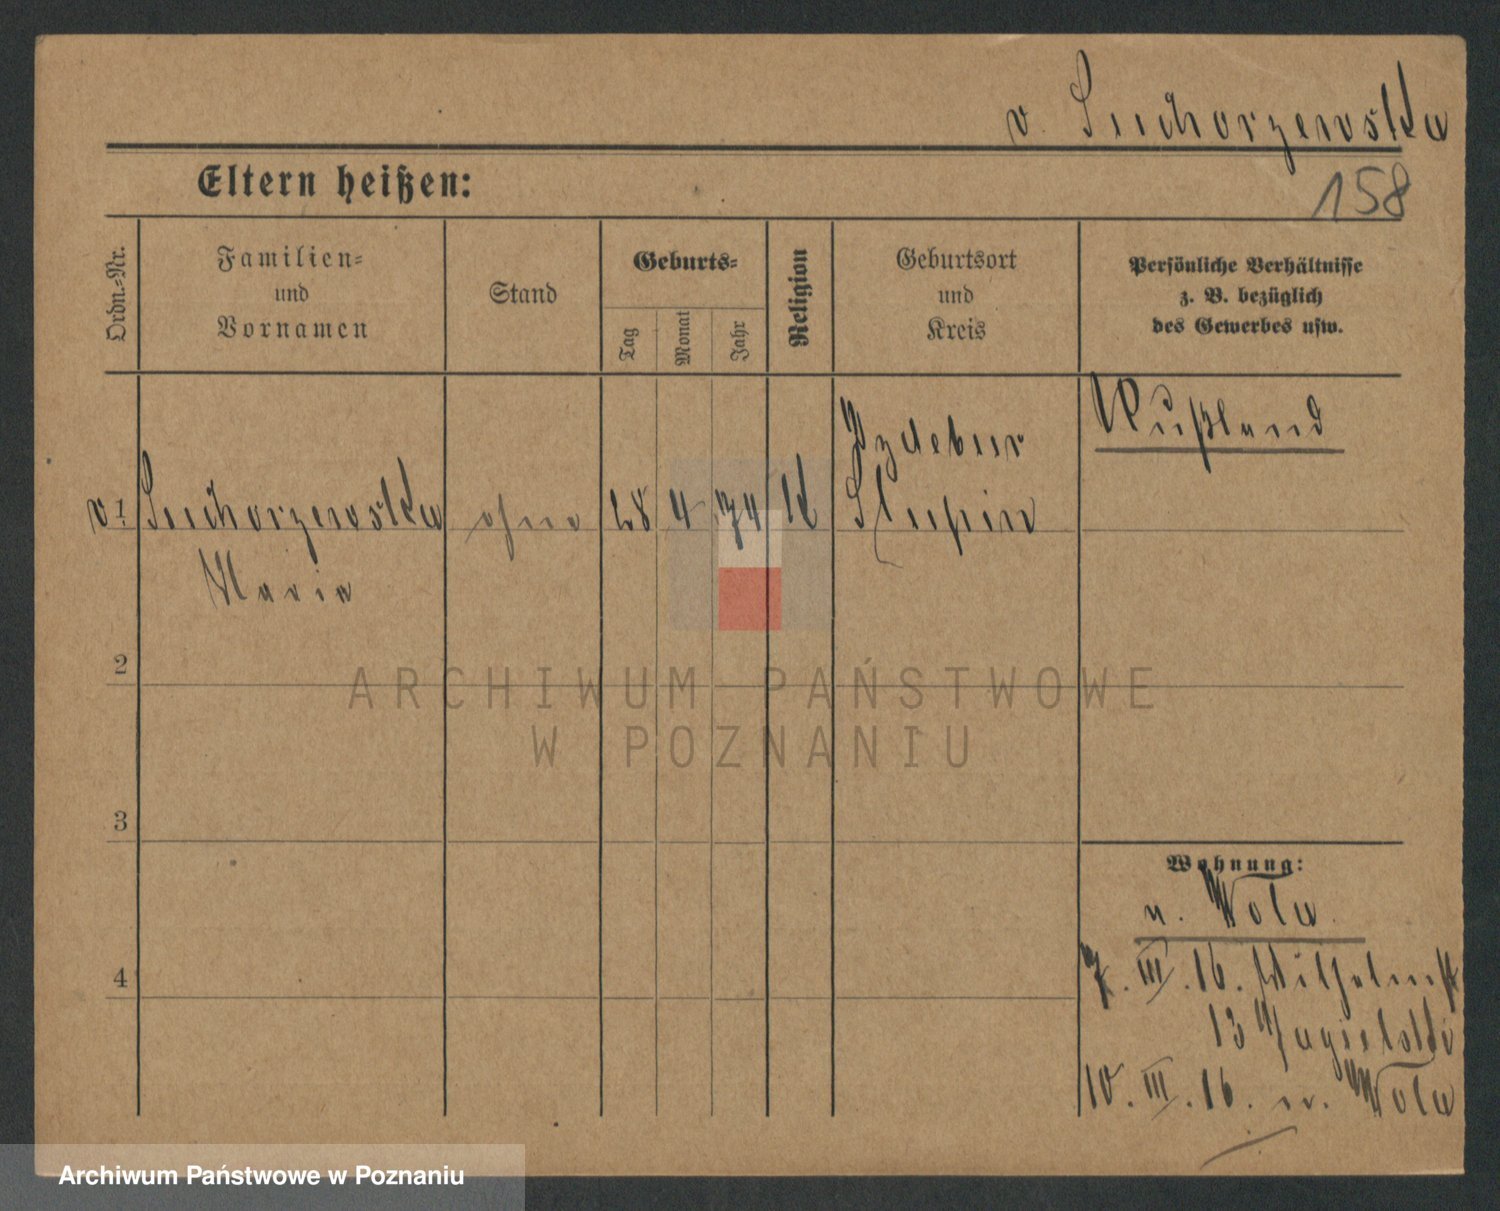 v. Suchorzewska
158
Eltern heißen:
Ordn.-Nr.
Familien-
und
Vornamen
Stand
Geburts-
Tag
Monat
Jahr
Religion
Geburtsort
und
Kreis
Persönliche Verhältnisse
z. B. bezüglich
des Gewerbes usw.
Rußland
1 v. Suchorzewska ohne 28 4 74 K
Maria
Slupia
2
3
4
Wohnung:
n. Wola
7. III. 16. Wilhelmst
13 Jagielski
10. III. 16. n. Wola
ARCHIWUM PAŃSTWOWE
W POZNANIU
Archiwum Państwowe w Poznaniu